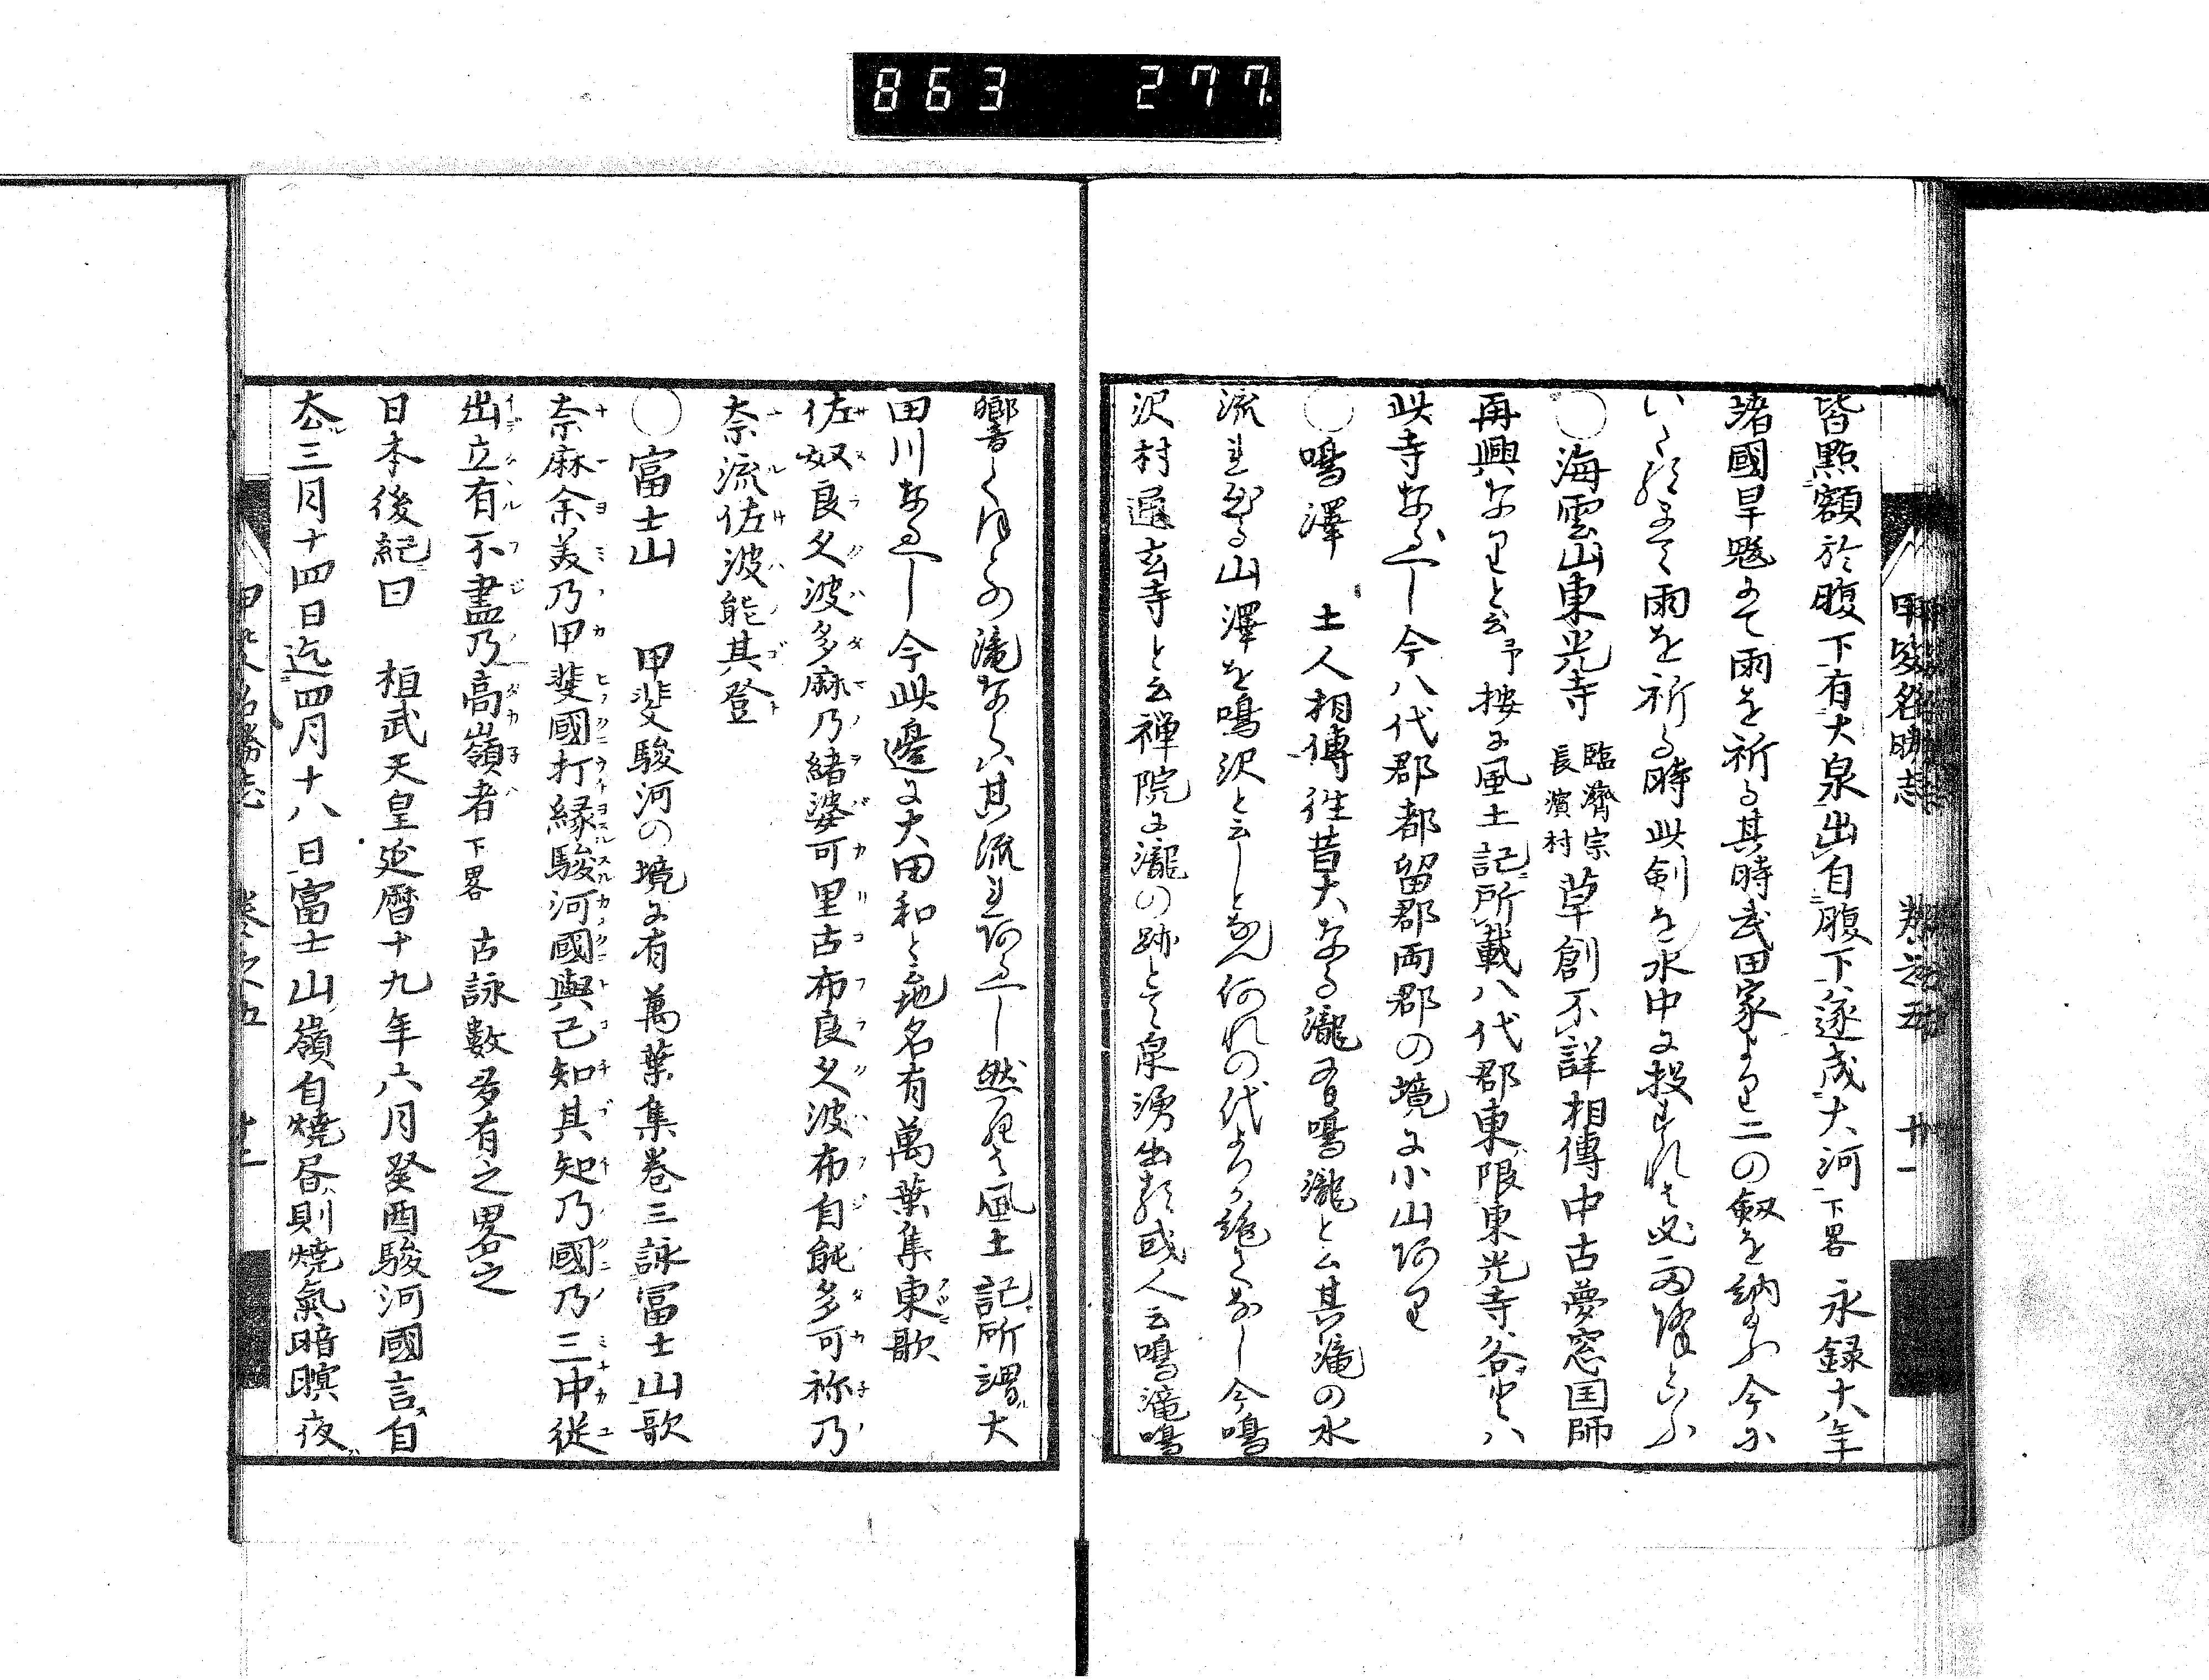 863 277
皆點額於腹下有大泉出自腹下遂成大河 下畧 永録十八年
諸國旱魃にて雨を祈る其時武田家より二の釼を納給ふ今に
いたるまて雨を祈る時此剣を水中に投すれは必雨降といふ
○海雲山東光寺 臨濟宗 長濱村 草創不詳相傳中古夢窓国師
再興なりと云予按に風土記所載八代郡東限東光寺谷也ハ
此寺なるへし今八代郡都留郡両郡の境に小山阿り
○鳴澤 土人相傳往昔大なる瀧有鳴瀧と云其滝の水
流れ出る山澤を鳴沢と云しとなん何れの代より絶てなし今鳴
沢村通玄寺と云禅院に瀧の跡とて泉湧出す或人云鳴滝鳴
響くほとの滝ならハ其流れ阿るへし然れは風土記所謂大
田川なるへし今此邊に大田和と云地名有萬葉集東歌
佐奴良久波多麻乃緒婆可里古布良久波布自能多可祢乃
奈流佐波能其登
○富士山 甲斐駿河の境に有萬葉集巻三詠富士山歌
奈麻余美乃甲斐國打縁駿河國與己知其知乃國乃三中従
出立有不盡乃高嶺者 下畧 古詠數多有之畧之
日本後紀曰 桓武天皇延暦十九年六月癸酉駿河國言自
去三月十四日迄四月十八日富士山嶺自燒昼則燒氣暗瞑夜
甲斐名勝志 巻之五